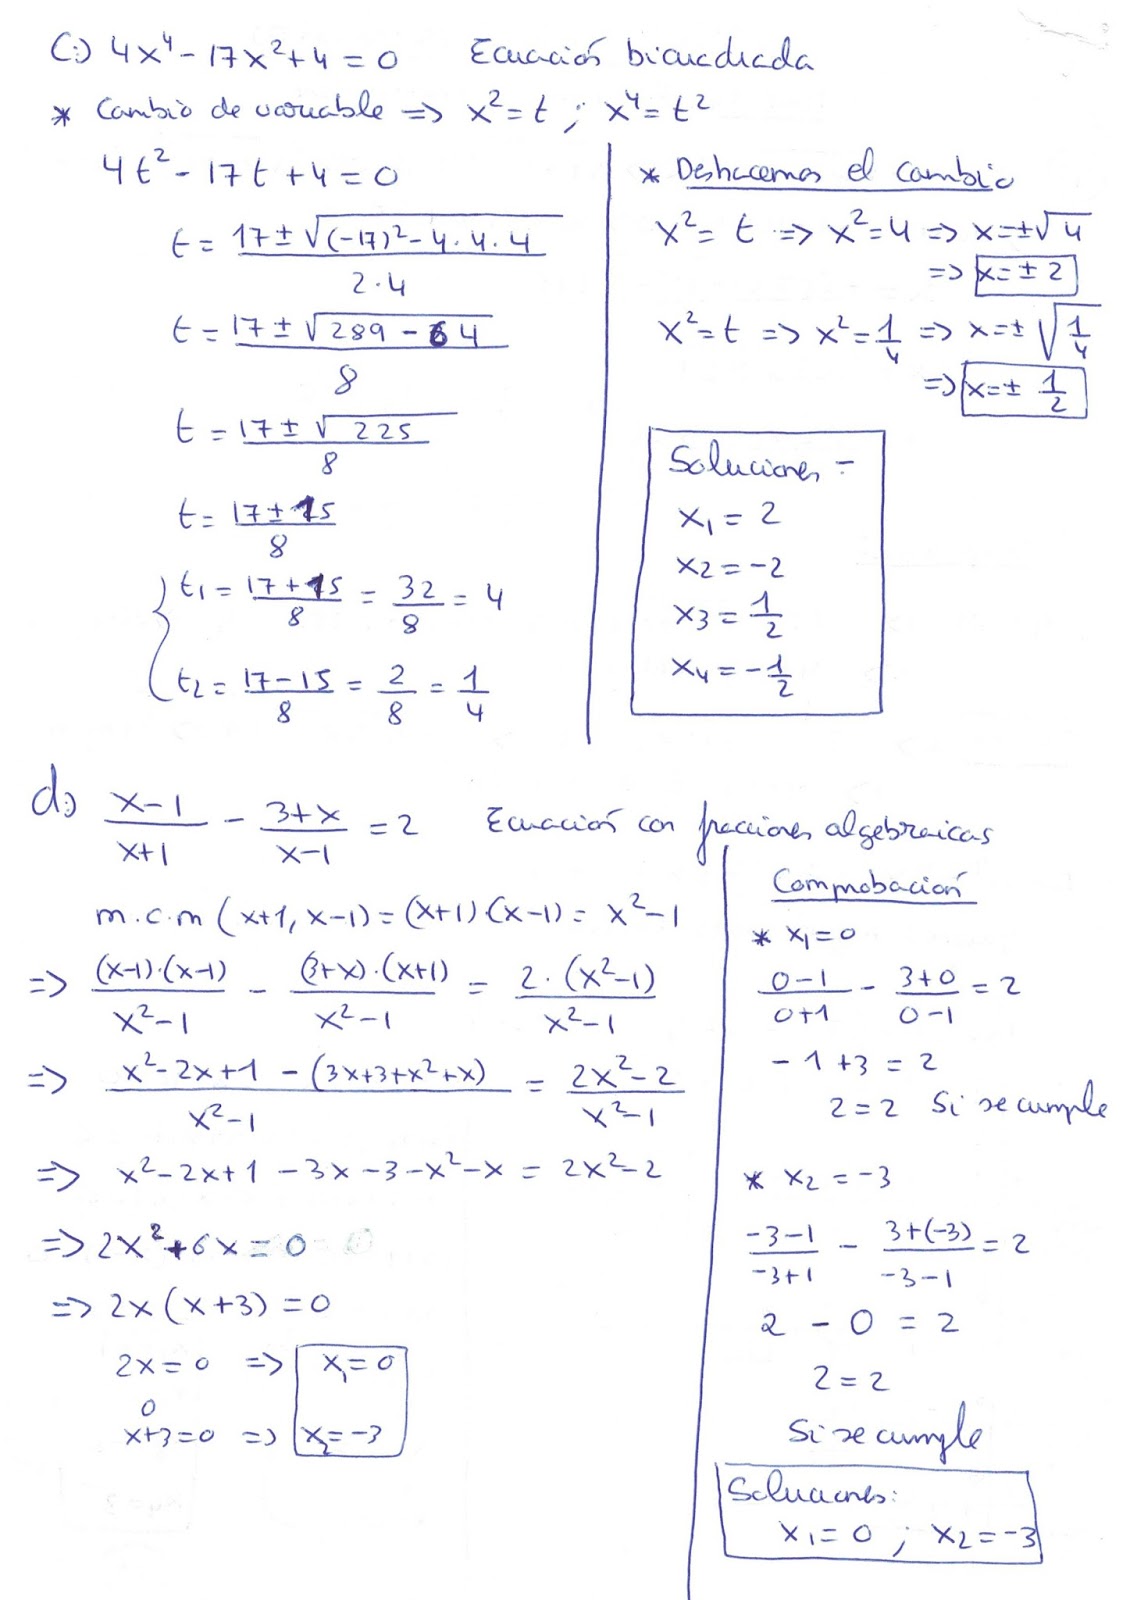 c) 4x⁴ - 17x² + 4 = 0 Ecuación bicuadrada
* Cambio de variable => x² = t ; x⁴ = t²
4t² - 17t + 4 = 0
t = (17 ± √((-17)² - 4·4·4)) / (2·4)
t = (17 ± √(289 - 64)) / 8
t = (17 ± √225) / 8
t = (17 ± 15) / 8
t₁ = (17 + 15)/8 = 32/8 = 4
t₂ = (17 - 15)/8 = 2/8 = 1/4
* Deshacemos el cambio
x² = t => x² = 4 => x = ±√4
=> x = ± 2
x² = t => x² = 1/4 => x = ±√(1/4)
=> x = ± 1/2
Soluciones =
x₁ = 2
x₂ = -2
x₃ = 1/2
x₄ = -1/2
d) (x-1)/(x+1) - (3+x)/(x-1) = 2 Ecuación con fracciones algebraicas
m.c.m (x+1, x-1) = (x+1)·(x-1) = x² - 1
=> (x-1)·(x-1)/(x²-1) - (3+x)·(x+1)/(x²-1) = 2·(x²-1)/(x²-1)
=> (x² - 2x + 1 - (3x+3+x²+x))/(x²-1) = (2x²-2)/(x²-1)
=> x² - 2x + 1 - 3x - 3 - x² - x = 2x² - 2
=> 2x² + 6x = 0
=> 2x (x+3) = 0
2x = 0 => x₁ = 0
o
x+3 = 0 => x₂ = -3
Comprobación
* x₁ = 0
(0-1)/(0+1) - (3+0)/(0-1) = 2
- 1 + 3 = 2
2 = 2 Si se cumple
* x₂ = -3
(-3-1)/(-3+1) - (3+(-3))/(-3-1) = 2
2 - 0 = 2
2 = 2
Si se cumple
Soluciones:
x₁ = 0 ; x₂ = -3